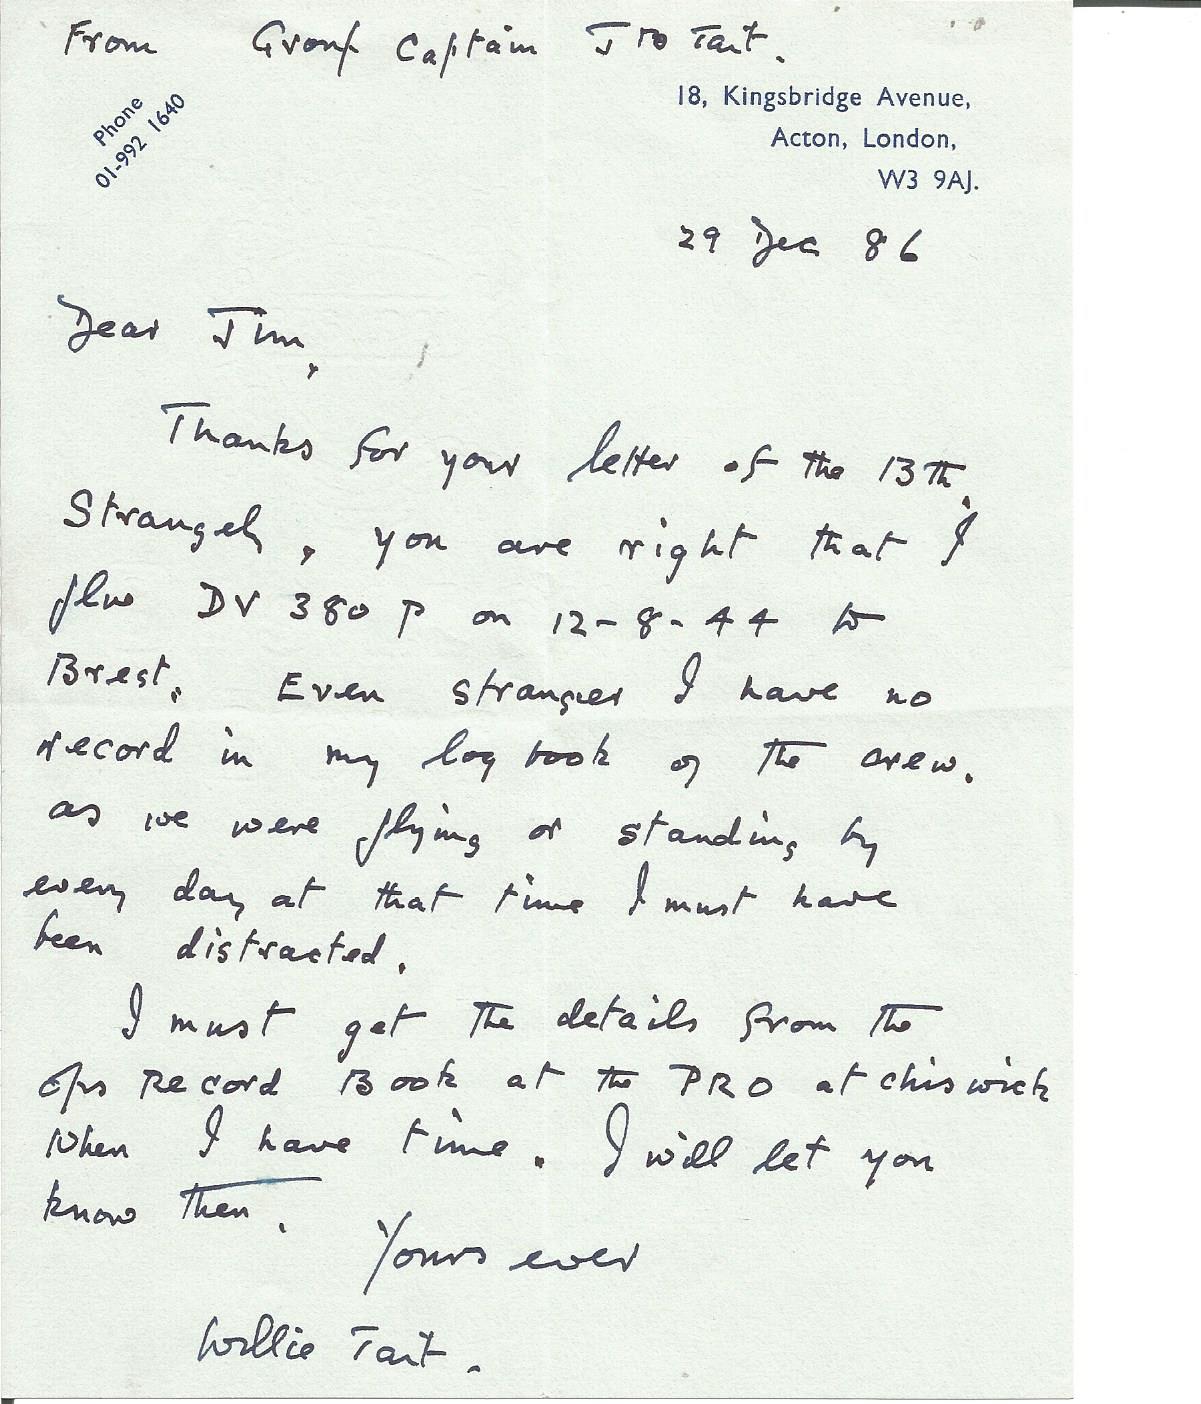 From Group Captain J B Tait.
Phone
01-992 1640
18, Kingsbridge Avenue,
Acton, London,
W3 9AJ.
29 Dec 86
Dear Jim,
Thanks for your letter of the 13th.
Strangely, you are right that I
flew DV 380 P on 12-8-44 to
Brest. Even stranger I have no
record in my log book of the crew.
as we were flying or standing by
every day at that time I must have
been distracted.
I must get the details from the
Ops Record Book at the PRO at chiswick
when I have time. I will let you
know then.
Yours ever
Willie Tait.